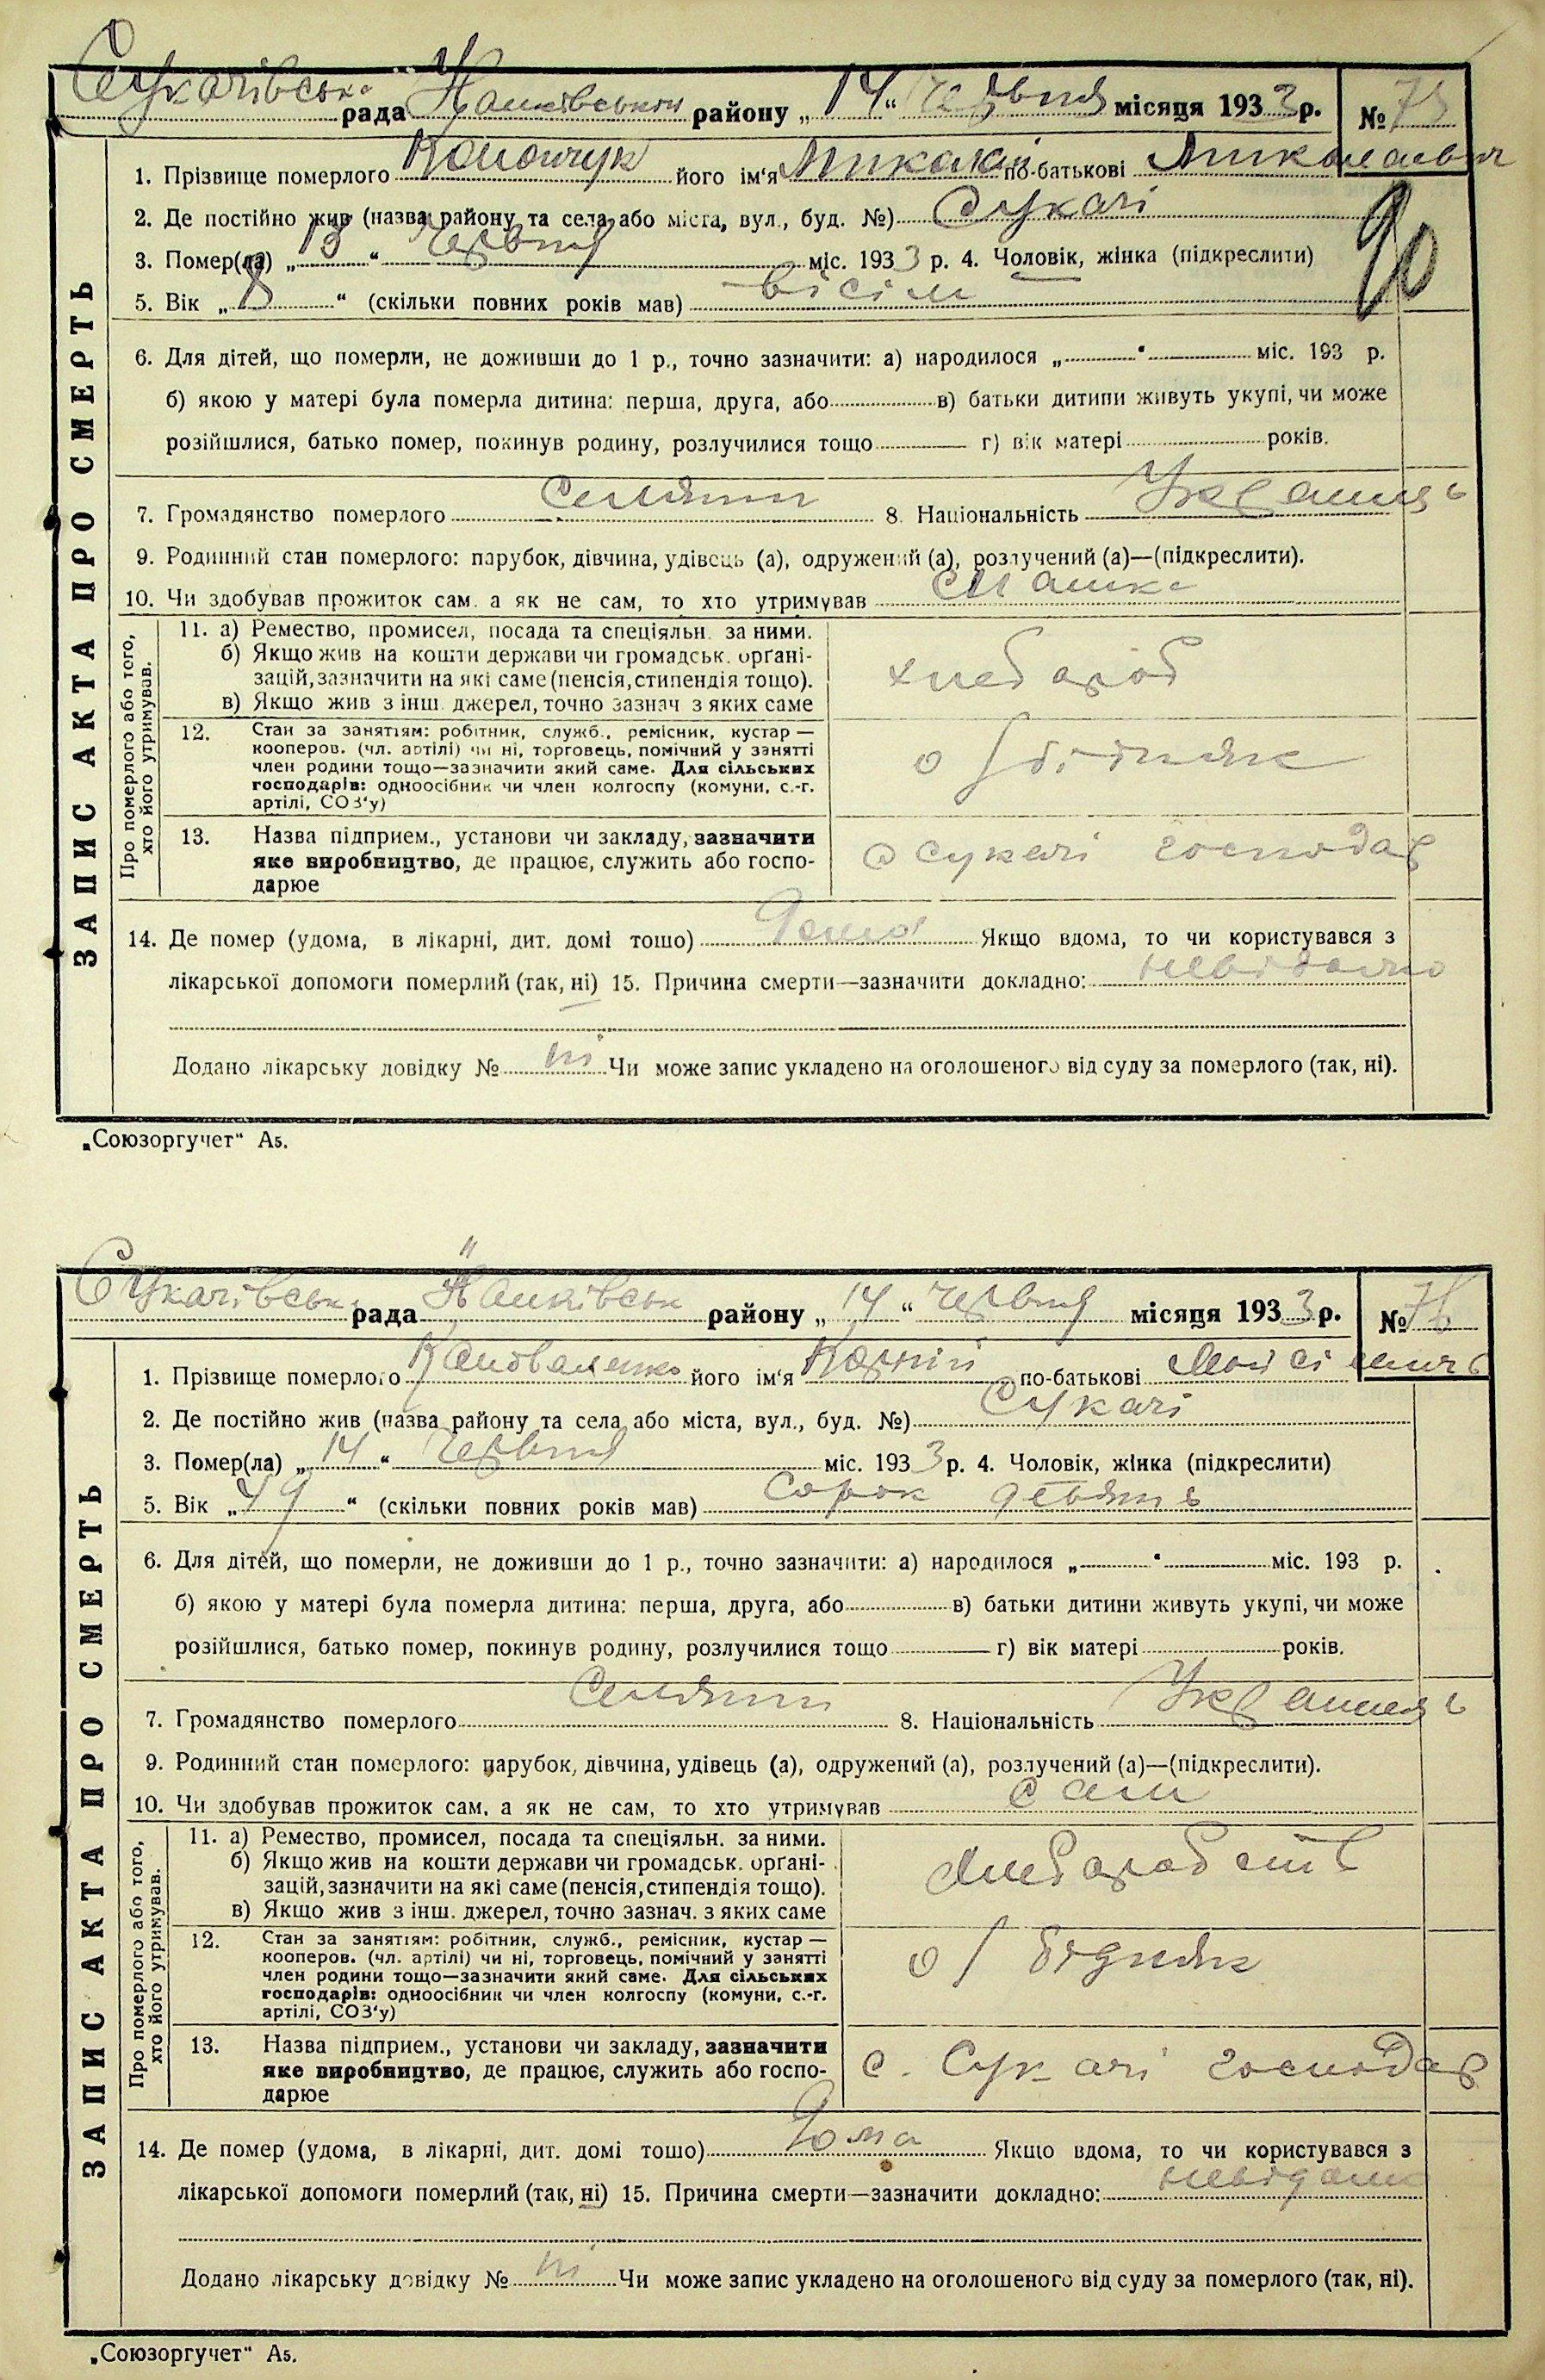 Сукачівська рада Іванківськой району „14“ Червня місяця 1933 р. № 75
1. Прізвище померлого Конончук його ім‘я Миколай по-батькові Миколаевич
2. Де постійно жив (назва району та села або міста, вул., буд. №) Сукачі
3. Помер(ла) „13“ Червня міс. 1933 р. 4. Чоловік, жінка (підкреслити)
90
5. Вік „8“ (скільки повних років мав) вісім
6. Для дітей, що померли, не доживши до 1 р., точно зазначити: а) народилося „ “ міс. 193 р.
б) якою у матері була померла дитина: перша, друга, або в) батьки дитини живуть укупі, чи може
розійшлися, батько помер, покинув родину, розлучилися тощо г) вік матері років.
7. Громадянство померлого Селянин 8. Національність Украинець
9. Родинний стан померлого: парубок, дівчина, удівець (а), одружений (а), розлучений (а)—(підкреслити).
10. Чи здобував прожиток сам, а як не сам, то хто утримував
ЗАПИС АКТА ПРО СМЕРТЬ
Про померлого або того, хто його утримував.
11. а) Ремество, промисел, посада та спеціяльн. за ними.
б) Якщо жив на кошти держави чи громадськ. органі-
зацій, зазначити на які саме (пенсія, стипендія тощо).
в) Якщо жив з інш. джерел, точно зазнач з яких саме
хлебороб
12. Стан за заняттям: робітник, служб., ремісник, кустар —
кооперов. (чл. артілі) чи ні, торговець, помічний у занятті
член родини тощо—зазначити який саме. Для сільських
господарів: одноосібник чи член колгоспу (комуни, с.-г.
артілі, СОЗ‘у)
о/бідняк
13. Назва підприєм., установи чи закладу, зазначити
яке виробництво, де працює, служить або госпо-
дарює
с Сукачі господар
14. Де помер (удома, в лікарні, дит. домі тощо) Дома Якщо вдома, то чи користувався з
лікарської допомоги померлий (так, ні) 15. Причина смерти—зазначити докладно: невідомо
Додано лікарську довідку № ні Чи може запис укладено на оголошеного від суду за померлого (так, ні).
„Союзоргучет“ А5.
Сукачівськ рада Іванківськ району „14“ Червня місяця 1933 р. № 76
1. Прізвище померлого Коноваленко його ім‘я Корній по-батькові
2. Де постійно жив (назва району та села або міста, вул., буд. №) Сукачі
3. Помер(ла) „14“ Червня міс. 1933 р. 4. Чоловік, жінка (підкреслити)
5. Вік „49“ (скільки повних років мав) Сорок девять
6. Для дітей, що померли, не доживши до 1 р., точно зазначити: а) народилося „ “ міс. 193 р.
б) якою у матері була померла дитина: перша, друга, або в) батьки дитини живуть укупі, чи може
розійшлися, батько помер, покинув родину, розлучилися тощо г) вік матері років.
7. Громадянство померлого Селянин 8. Національність Украинець
9. Родинний стан померлого: парубок, дівчина, удівець (а), одружений (а), розлучений (а)—(підкреслити).
10. Чи здобував прожиток сам, а як не сам, то хто утримував сам
ЗАПИС АКТА ПРО СМЕРТЬ
Про померлого або того, хто його утримував.
11. а) Ремество, промисел, посада та спеціяльн. за ними.
б) Якщо жив на кошти держави чи громадськ. органі-
зацій, зазначити на які саме (пенсія, стипендія тощо).
в) Якщо жив з інш. джерел, точно зазнач. з яких саме
12. Стан за заняттям: робітник, служб., ремісник, кустар —
кооперов. (чл. артілі) чи ні, торговець, помічний у занятті
член родини тощо—зазначити який саме. Для сільських
господарів: одноосібник чи член колгоспу (комуни, с.-г.
артілі, СОЗ‘у)
о/бідняк
13. Назва підприєм., установи чи закладу, зазначити
яке виробництво, де працює, служить або госпо-
дарює
с. Сукачі господар
14. Де помер (удома, в лікарні, дит. домі тощо) Дома Якщо вдома, то чи користувався з
лікарської допомоги померлий (так, ні) 15. Причина смерти—зазначити докладно: невідомо
Додано лікарську довідку № ні Чи може запис укладено на оголошеного від суду за померлого (так, ні).
„Союзоргучет“ А5.